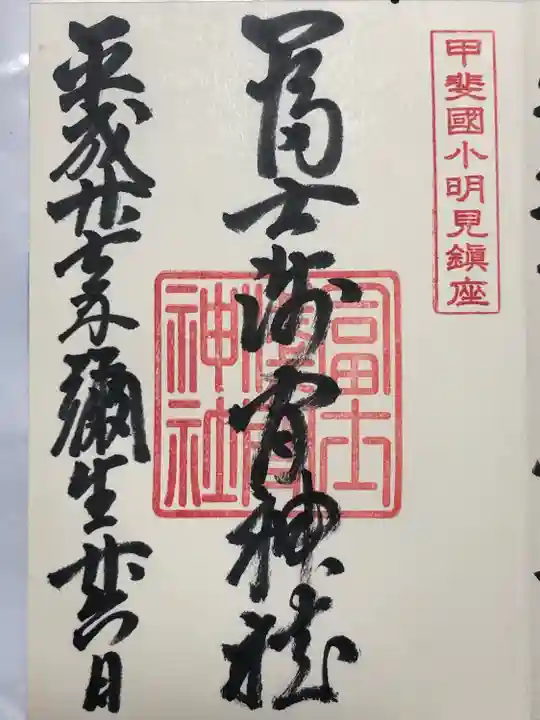 甲斐國小明見鎭座
冨士浅間神社
冨士
浅間
神社
平成廿七年彌生廿八日